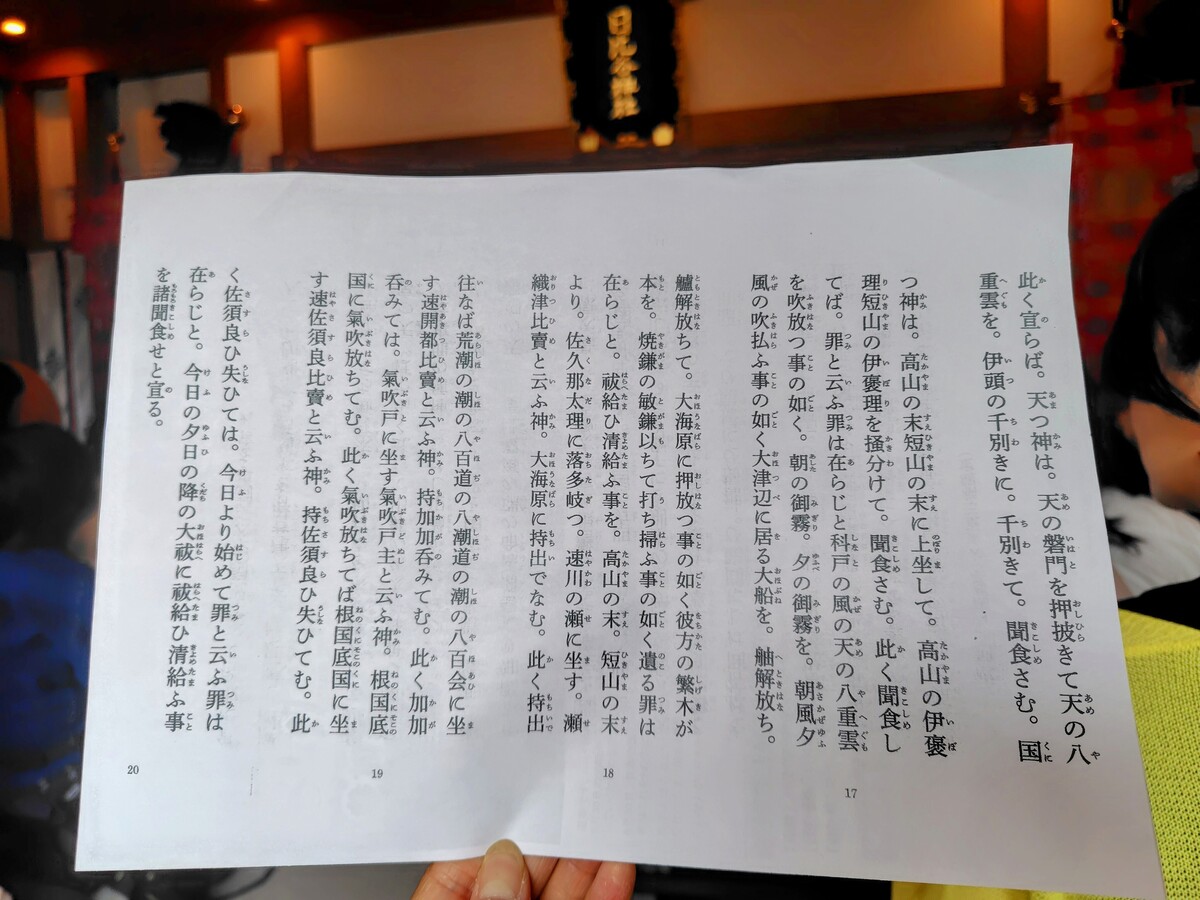 日比谷神社
此く宣らば。天つ神は。天の磐門を押披きて天の八
重雲を。伊頭の千別きに。千別きて。聞食さむ。国
つ神は。高山の末短山の末に上坐して。高山の伊褒
理短山の伊褒理を掻分けて。聞食さむ。此く聞食し
てば。罪と云ふ罪は在らじと科戸の風の天の八重雲
を吹放つ事の如く。朝の御霧。夕の御霧を。朝風夕
風の吹払ふ事の如く大津辺に居る大船を。舳解放ち。
17
艫解放ちて。大海原に押放つ事の如く彼方の繁木が
本を。焼鎌の敏鎌以ちて打ち掃ふ事の如く遺る罪は
在らじと。祓給ひ清給ふ事を。高山の末。短山の末
より。佐久那太理に落多岐つ。速川の瀬に坐す。瀬
織津比賣と云ふ神。大海原に持出でなむ。此く持出
18
往なば荒潮の潮の八百道の八潮道の潮の八百会に坐
す速開都比賣と云ふ神。持加加呑みてむ。此く加加
呑みては。氣吹戸に坐す氣吹戸主と云ふ神。根国底
国に氣吹放ちてむ。此く氣吹放ちてば根国底国に坐
す速佐須良比賣と云ふ神。持佐須良ひ失ひてむ。此
19
く佐須良ひ失ひては。今日より始めて罪と云ふ罪は
在らじと。今日の夕日の降の大祓に祓給ひ清給ふ事
を諸聞食せと宣る。
20